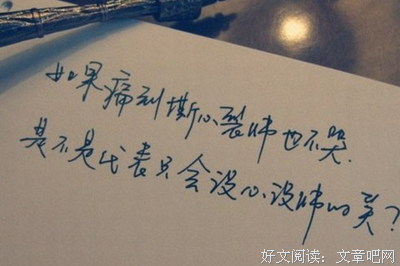 如果痛到撕心裂肺也不哭.
是不是代表只会没心没肺的笑?
好文阅读：文章吧网